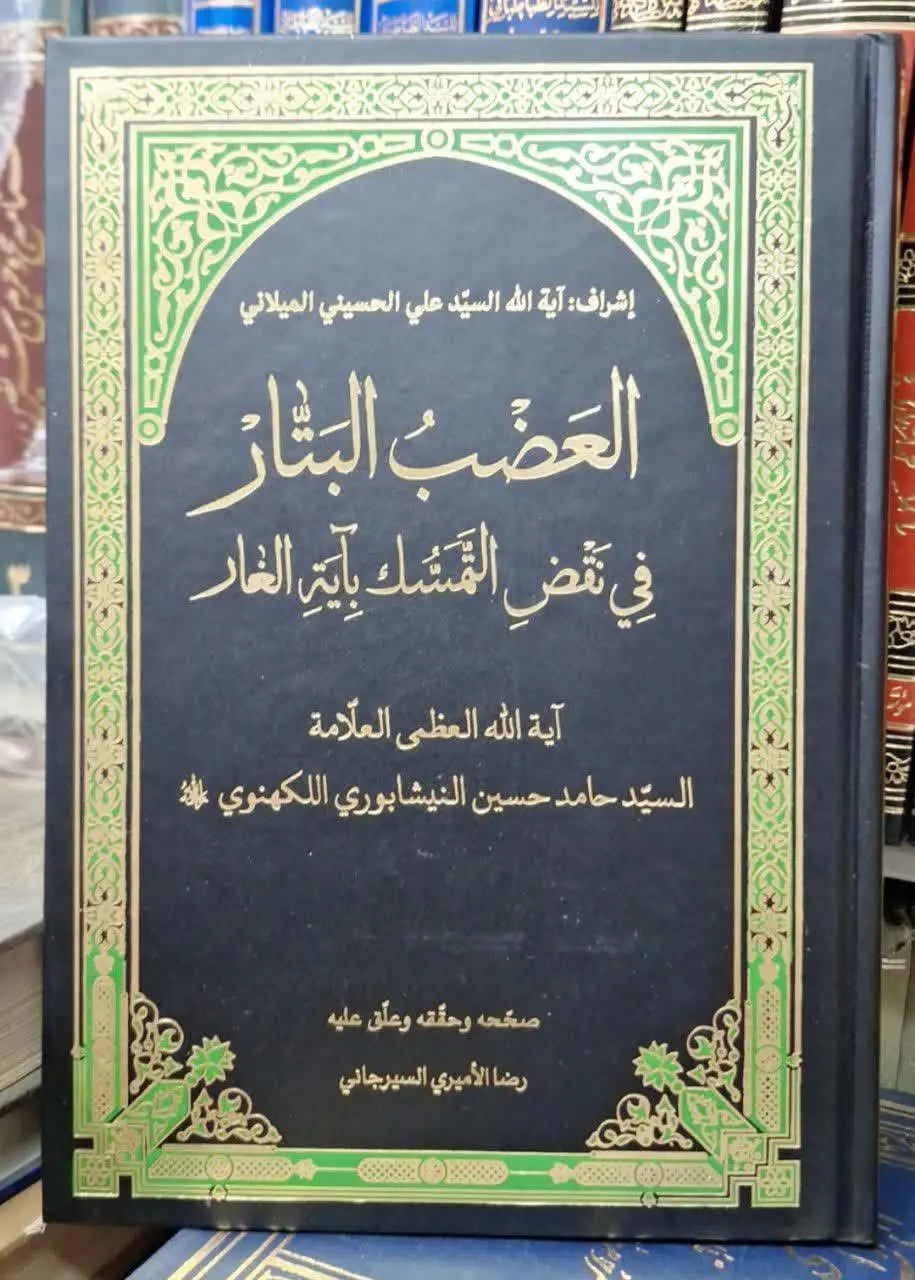 إشراف: آية الله السيّد علي الحسيني الميلاني
العَضْبُ البَتّار
فِي نَقْضِ التَّمَسُّك بِآيَةِ الغار
آية الله العظمى العلّامة
السيّد حامد حسين النيشابوري اللكهنوي
صحّحه وحقّقه وعلّق عليه
رضا الأميري السيرجاني